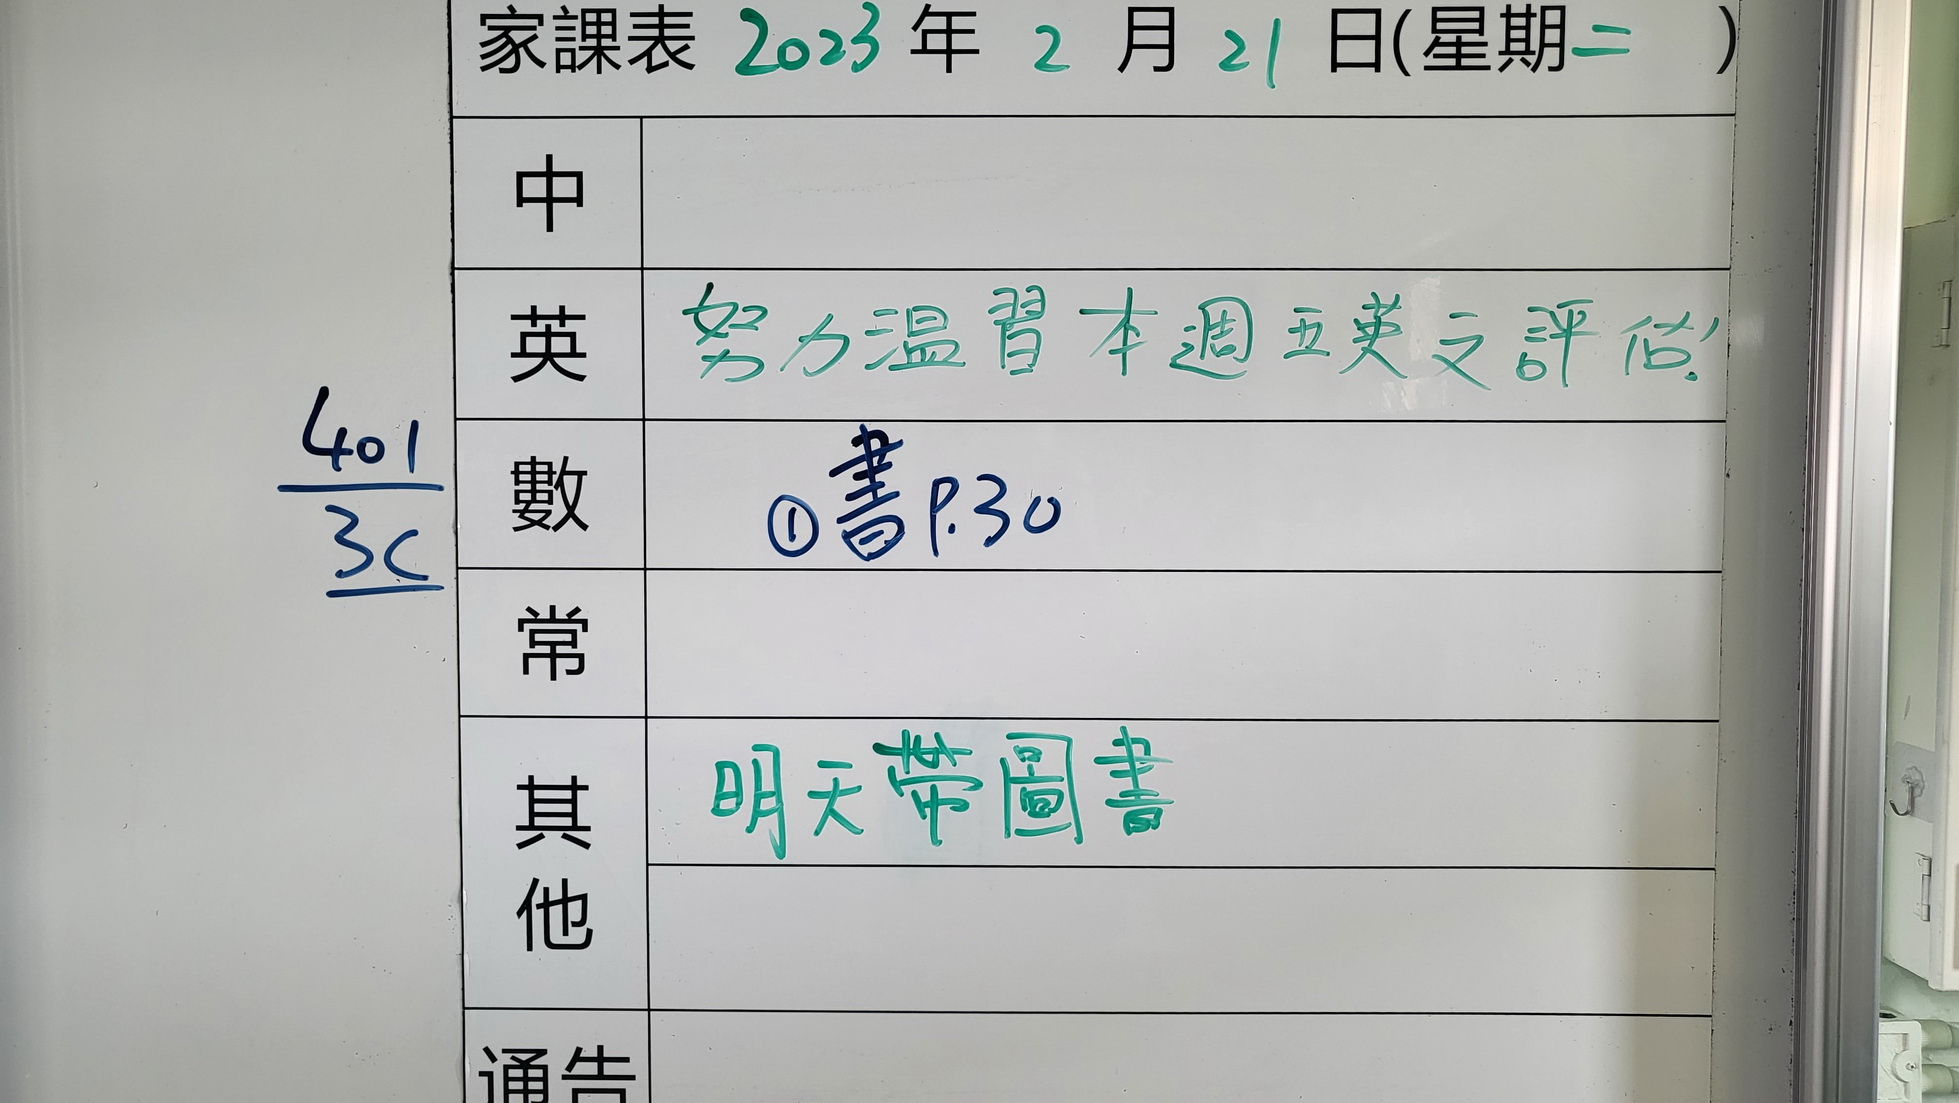 家課表 2023 年 2 月 21 日(星期二 )
中
英 努力温習本週五英文評估!
401
3C
數 ①書P.30
常
其他 明天帶圖書
通告